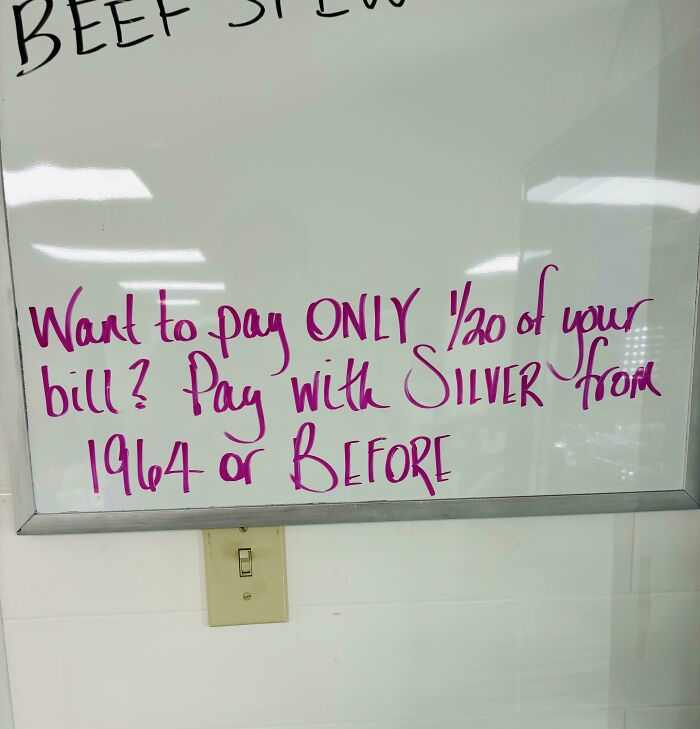 BEEF STEW
Want to pay ONLY 1/20 of your
bill? Pay with SILVER from
1964 or BEFORE